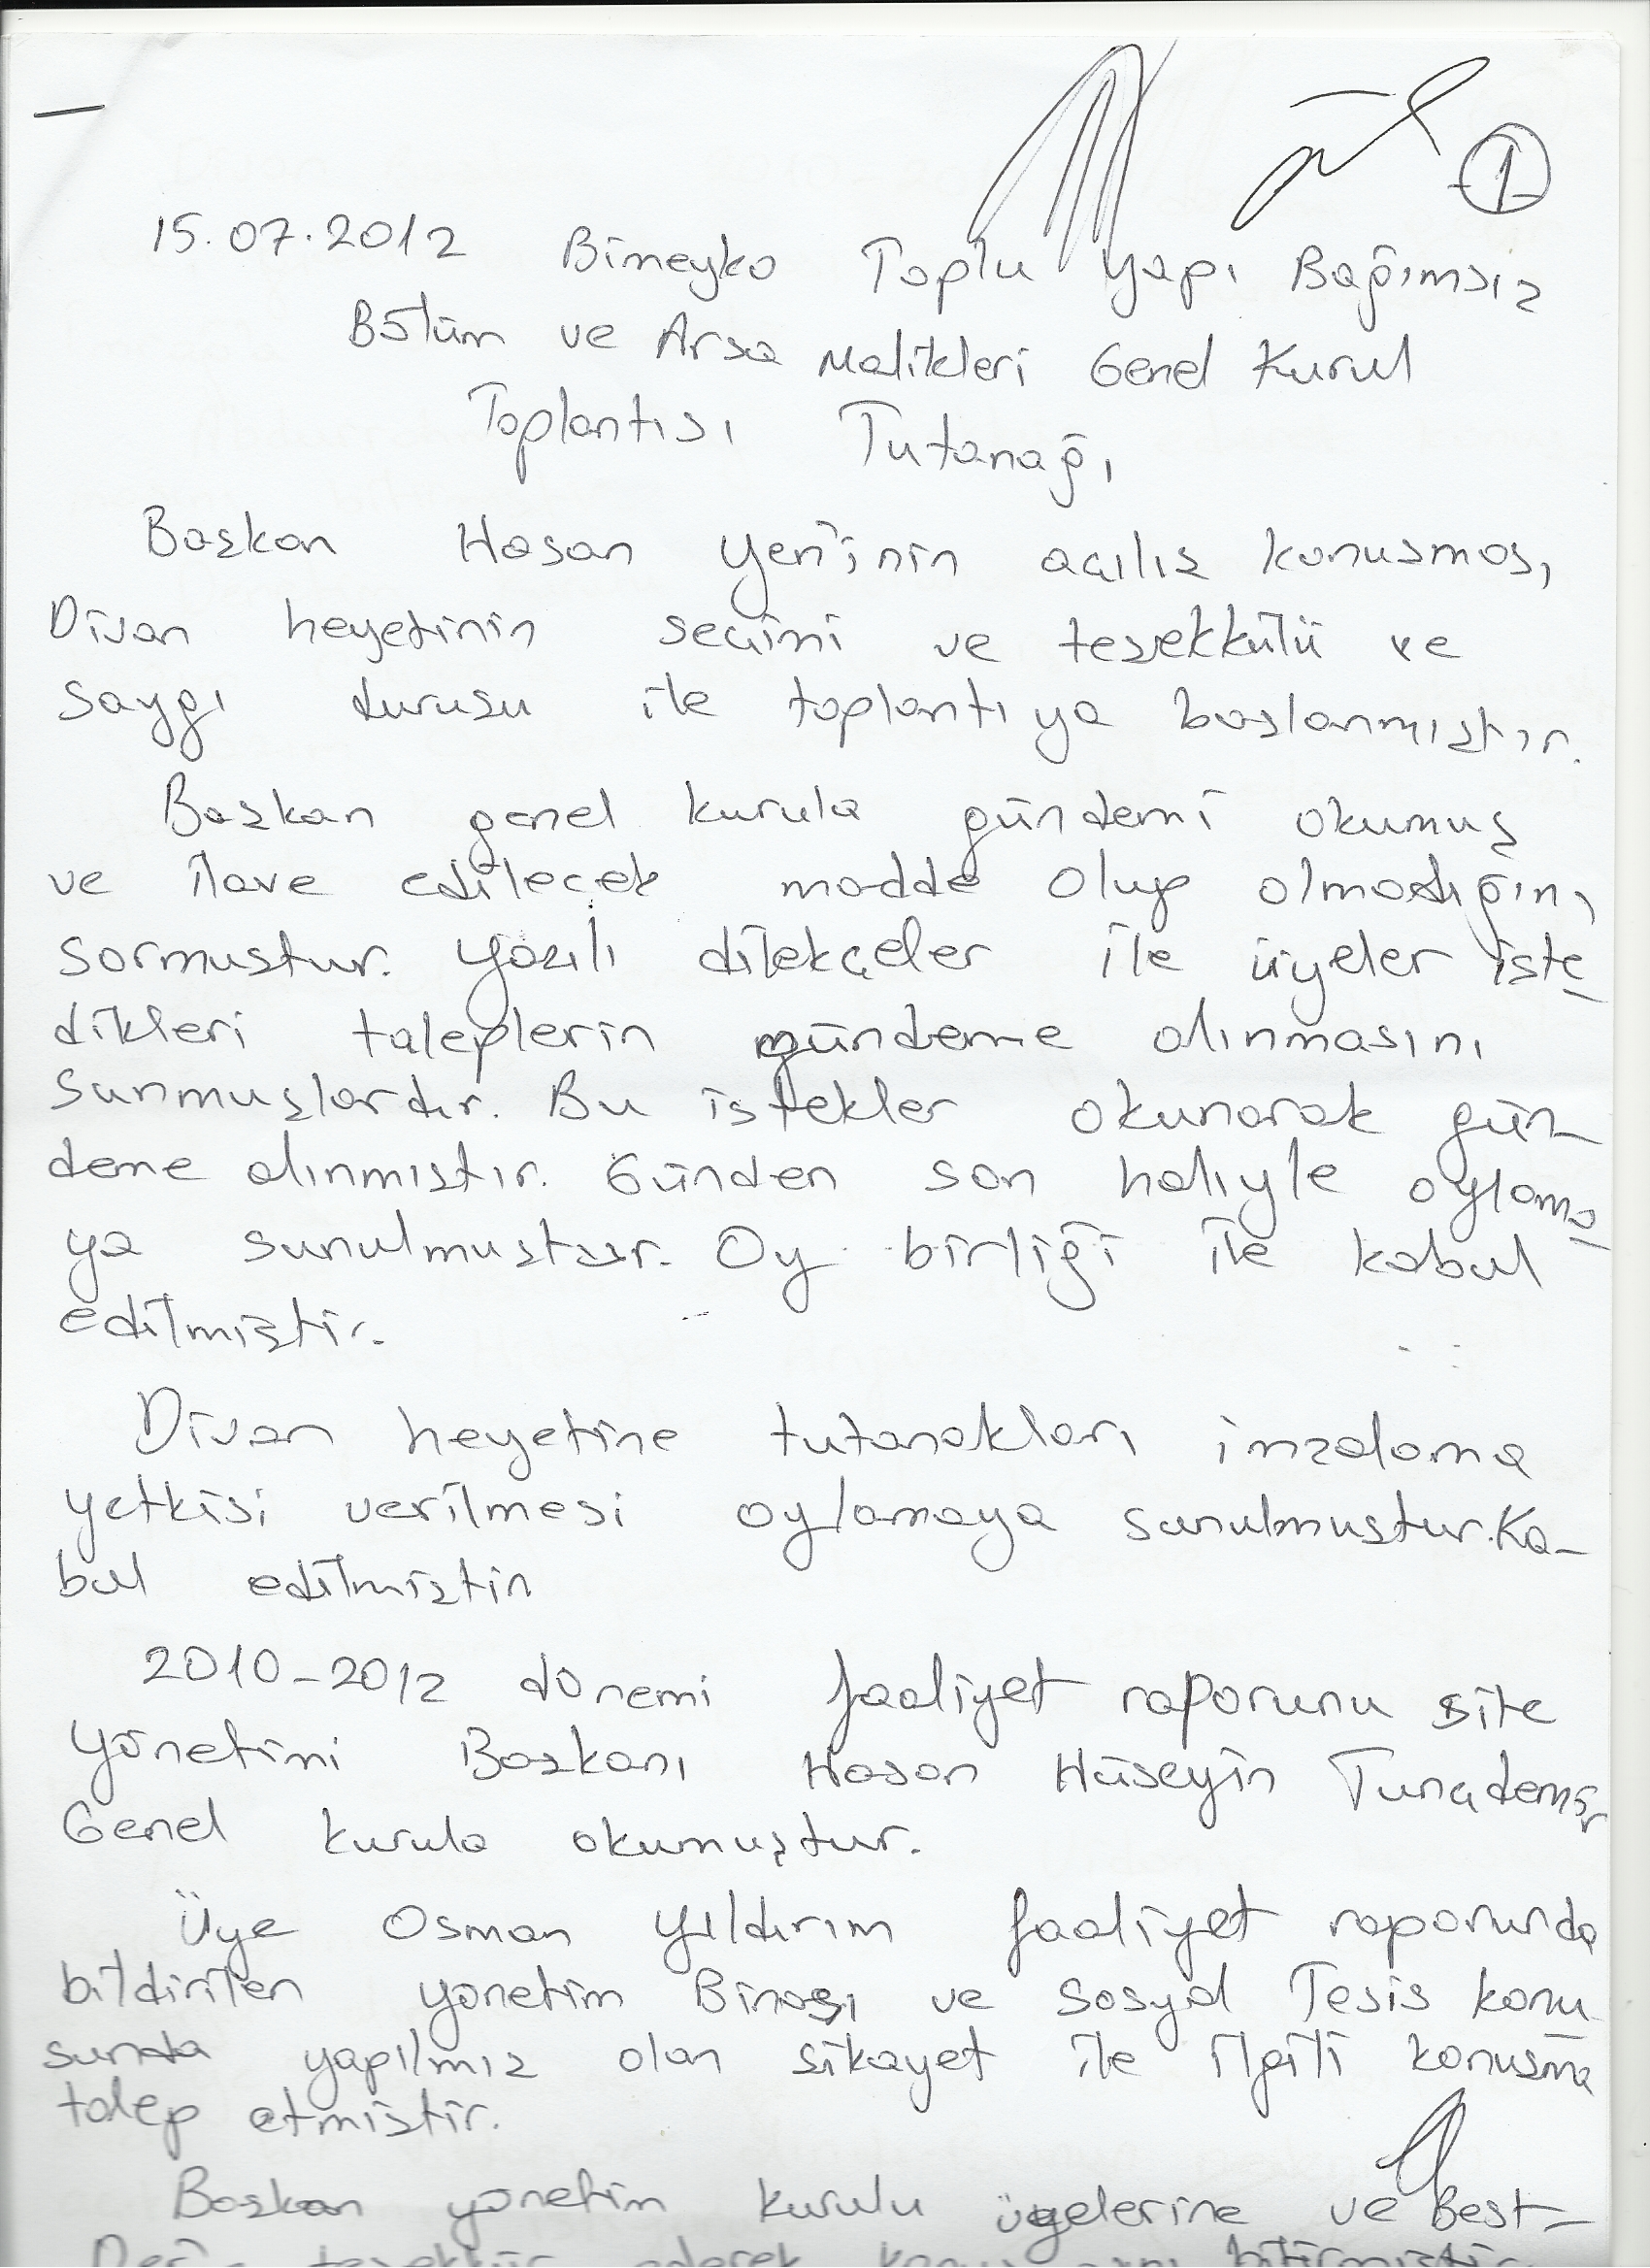 1
15.07.2012 Bimeyko Toplu Yapı Bağımsız
Bölüm ve Arsa Malikleri Genel Kurul
Toplantısı Tutanağı
Baskan Hasan Yeni'nin acılıs konusması,
Divan heyetinin secimi ve tesekkülü ve
saygı durusu ile toplantıya baslanmıstır.
Baskan genel kurula gündemi okumuş
ve ilave edilecek madde olup olmadığını
sormustur. Yazılı dilekçeler ile üyeler iste-
dikleri taleplerin gündeme alınmasını
sunmuşlardır. Bu istekler okunarak gün-
deme alınmıstır. Günden son haliyle oylama-
ya sunulmustur. Oy birliği ile kabul
edilmiştir.
Divan heyetine tutanakları imzalama
yetkisi verilmesi oylamaya sunulmustur. Ka-
bul edilmistir
2010-2012 dönemi faaliyet raporunu site
yönetimi Baskanı Hasan Hüseyin Tunçdemir
Genel kurula okumuştur.
Üye Osman Yıldırım faaliyet raporunda
bildirilen yönetim Binası ve Sosyal Tesis konu-
sunda yapılmıs olan sikayet ile ilgili konusma
talep etmistir.
Baskan yönetim kurulu üyelerine ve Best-
tesekkür ederek bitirmistir.